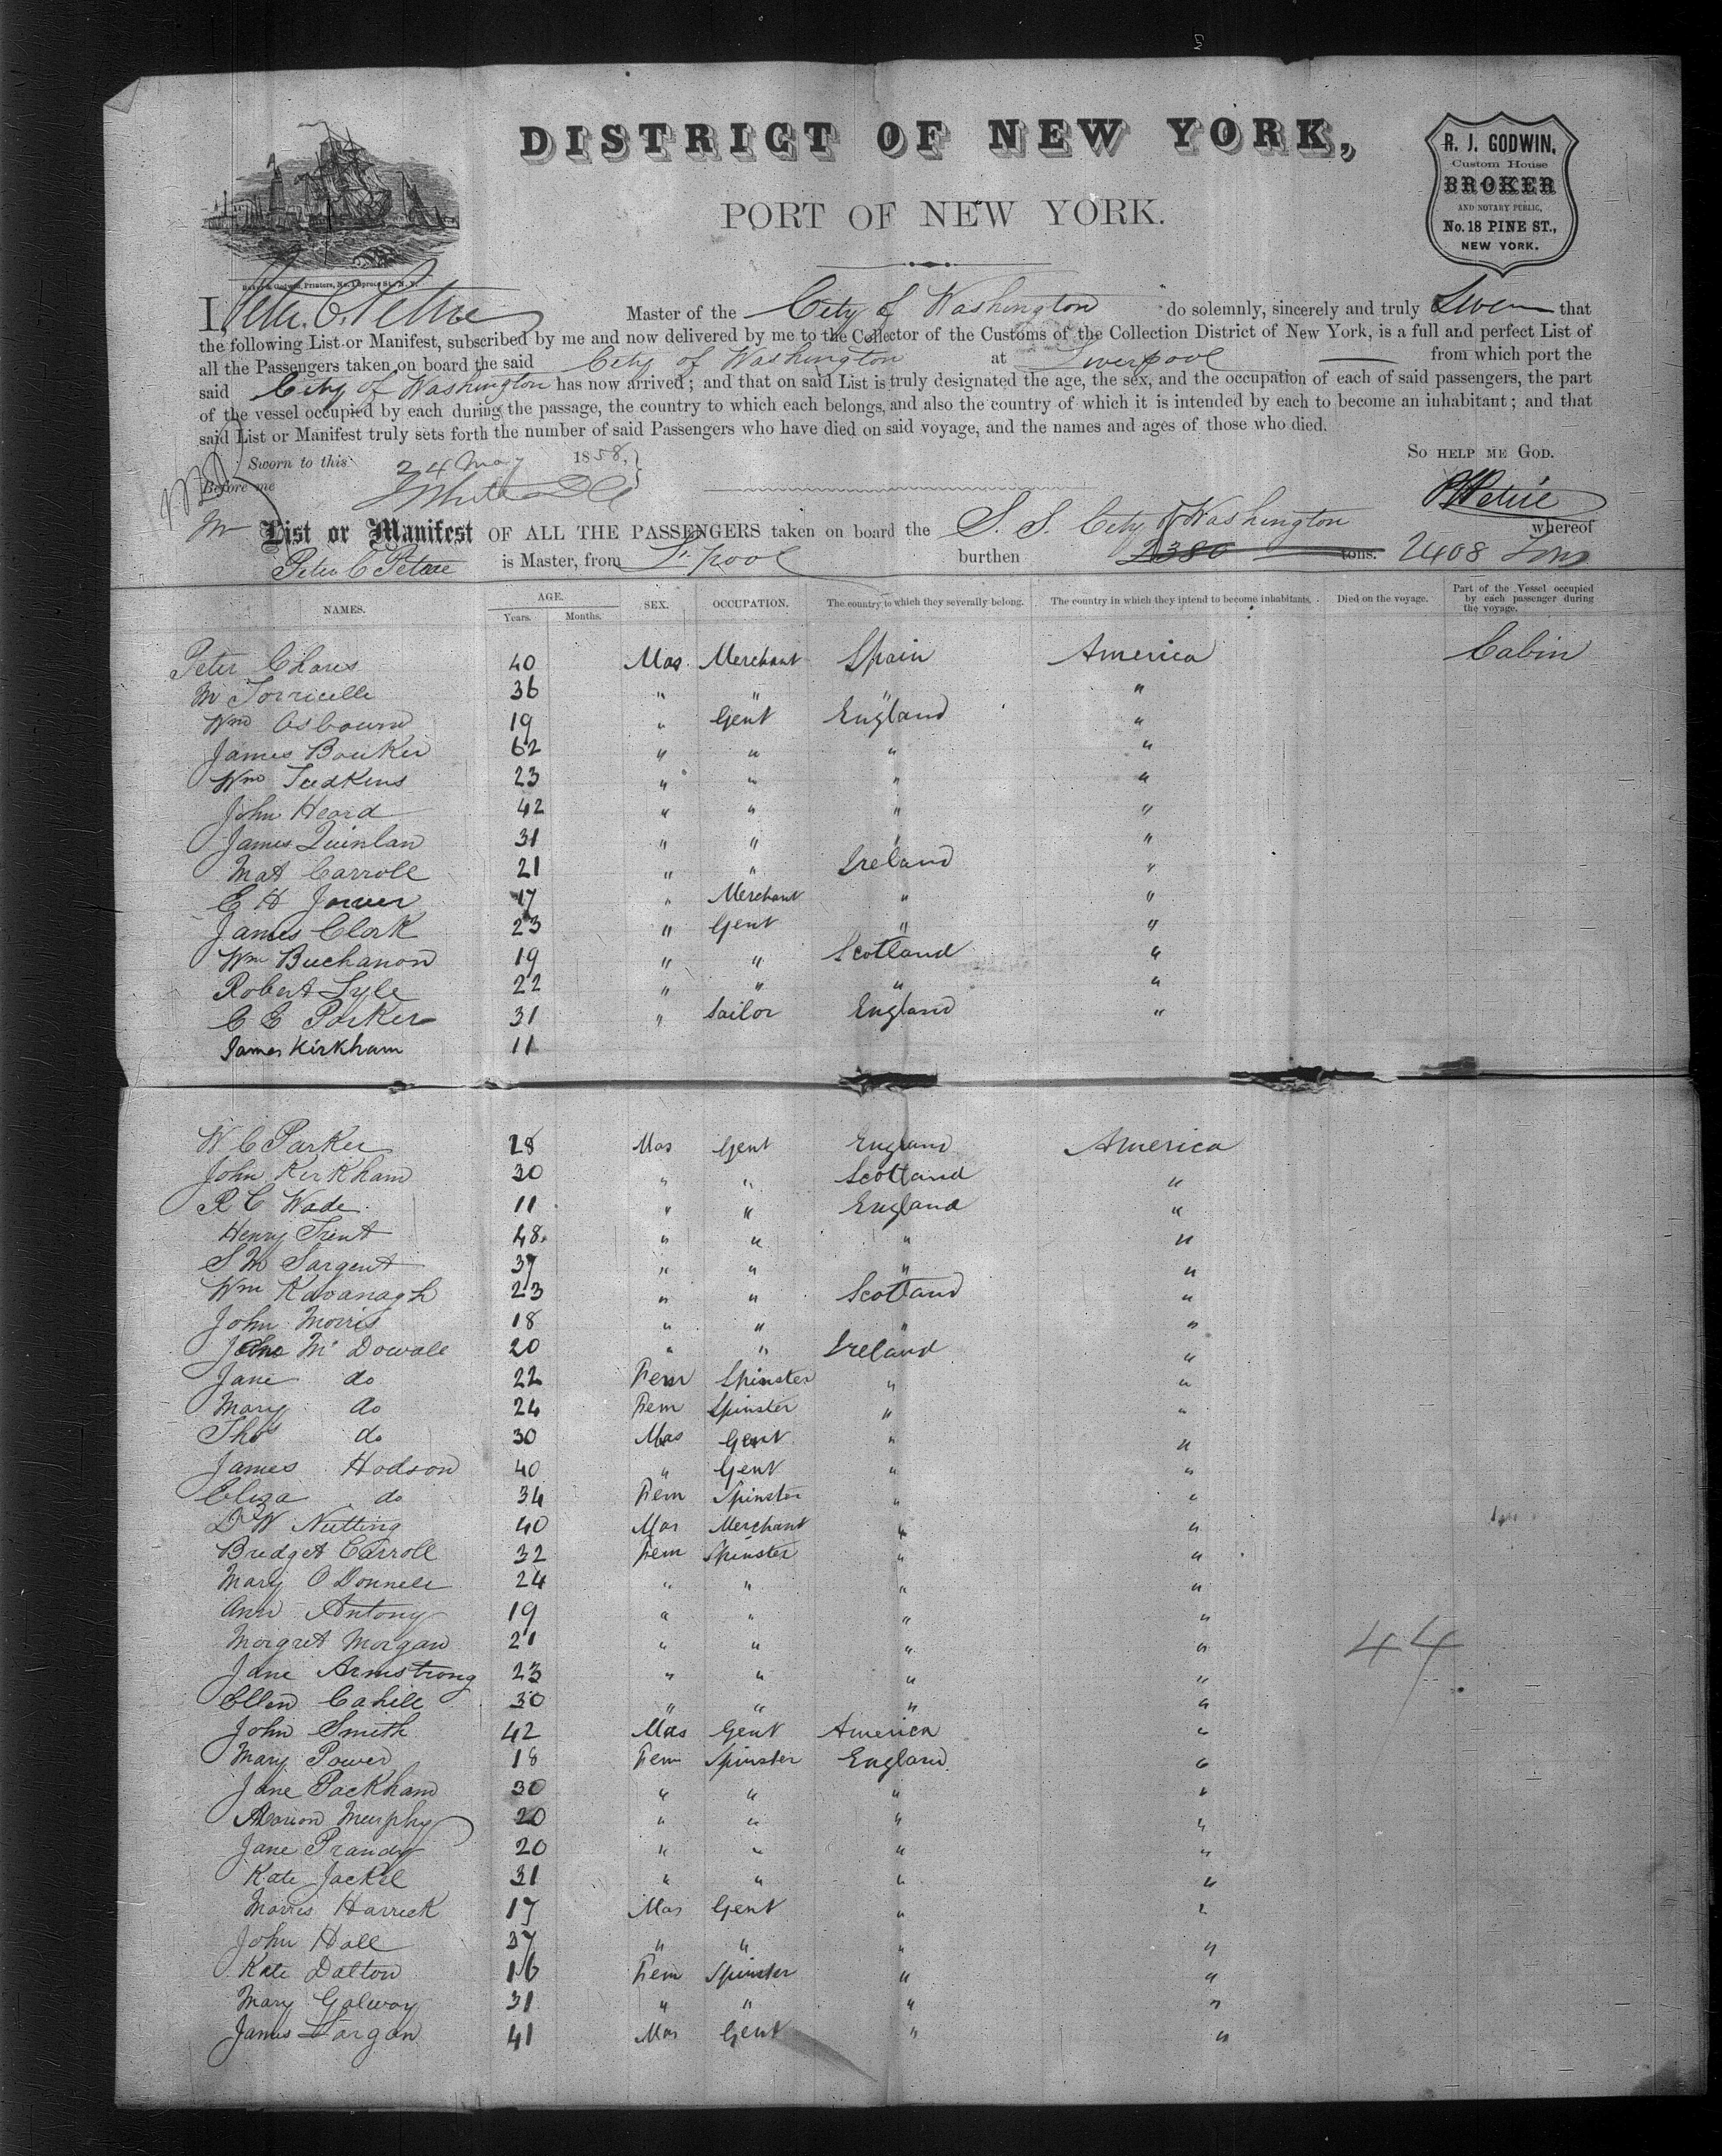 DISTRICT OF NEW YORK,
PORT OF NEW YORK.
R. J. GODWIN,
Custom House
BROKER
AND NOTARY PUBLIC,
No. 18 PINE ST.,
NEW YORK.
Baker & Godwin, Printers, No. 1 Spruce St., N. Y.
I, Peter C. Petrie Master of the City of Washington do solemnly, sincerely and truly Swear that
the following List or Manifest, subscribed by me and now delivered by me to the Collector of the Customs of the Collection District of New York, is a full and perfect List of
all the Passengers taken on board the said City of Washington at Liverpool from which port the
said City of Washington has now arrived; and that on said List is truly designated the age, the sex, and the occupation of each of said passengers, the part
of the vessel occupied by each during the passage, the country to which each belongs, and also the country of which it is intended by each to become an inhabitant; and that
said List or Manifest truly sets forth the number of said Passengers who have died on said voyage, and the names and ages of those who died.
Sworn to this 24 May 1858, SO HELP ME GOD.
Before me PPetrie
List or Manifest OF ALL THE PASSENGERS taken on board the S. S. City of Washington whereof
Peter C Petrie is Master, from L'pool burthen 2380 tons. 2408 Tons
NAMES. AGE. SEX. OCCUPATION. The country to which they severally belong. The country in which they intend to become inhabitants. Died on the voyage. Part of the Vessel occupied by each passenger during the voyage.
Years. Months.
Peter Chaves 40 Mas Merchant Spain America Cabin
M Torricelle 36 " " " "
Wm Osbourn 19 " Gent England "
James Bouker 62 " " " "
Wm Judkins 23 " " " "
John Heard 42 " " " "
James Quinlan 31 " " " "
Mat Carroll 21 " " Ireland "
E H 17 " Merchant " "
James Clark 23 " Gent " "
Wm Buchanon 19 " " Scotland "
Robert Lyle 22 " " " "
C E Parker 31 " Sailor England "
James Kirkham 11
W C Parker 28 Mas Gent England America
John Kirkham 30 " " Scotland "
R C Wade 11 " " England "
Henry Trent 48 " " " "
S M Sargent 37 " " " "
Wm Kavanagh 23 " " Scotland "
John Morris 18 " " " "
John Mc Dowall 20 " " Ireland "
Jane do 22 Fem Spinster " "
Mary do 24 Fem Spinster " "
Thos do 30 Mas Gent " "
James Hodson 40 " Gent " "
Eliza do 34 Fem Spinster " "
D W Nutting 40 Mas Merchant " "
Bridget Carroll 32 Fem Spinster " "
Mary O Donnell 24 " " " "
Ann Antony 19 " " " "
Margret Morgan 21 " " " "
44
Jane Armstrong 23 " " " "
Ellen Cahill 30 " " " "
John Smith 42 Mas Gent America "
Mary Power 18 Fem Spinster England "
Jane Packham 30 " " " "
Marion Murphy 20 " " " "
Jane Prandy 20 " " " "
Kate Jackel 31 " " " "
Morris Harrick 17 Mas Gent " "
John Hall 37 " " " "
Kate Dalton 16 Fem Spinster " "
Mary Galway 31 " " " "
James Largan 41 Mas Gent " "